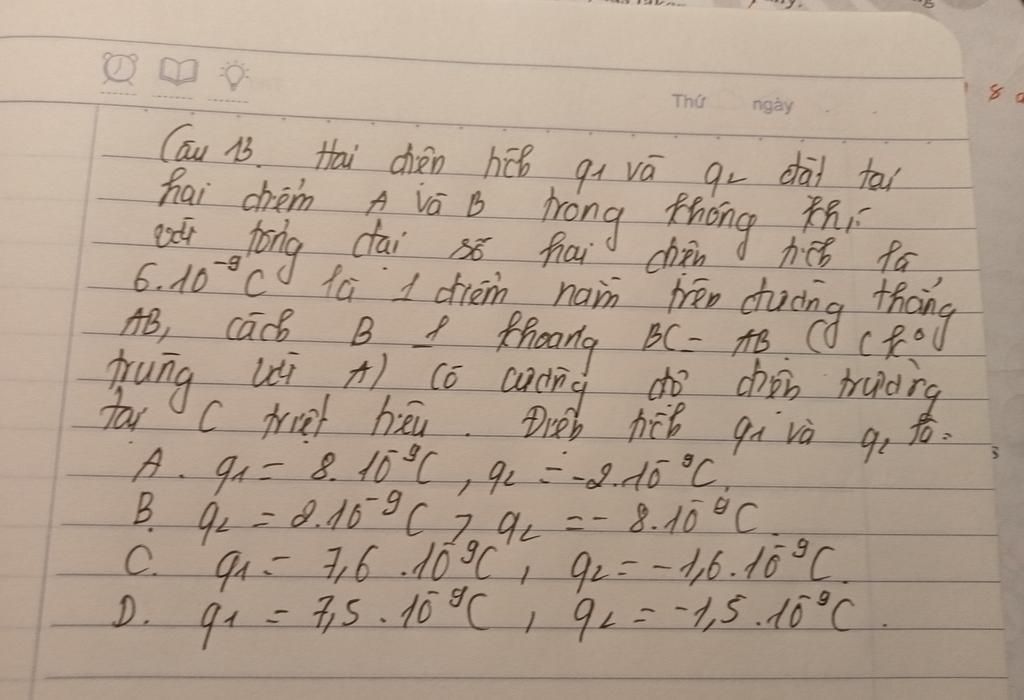 Thứ ngày
Câu 13. Hai điện tích q1 và q2 đặt tại
hai điểm A và B trong không khí
với tổng đại số hai điện tích là
6.10⁻⁹C là 1 điểm nằm trên đường thẳng
AB, cách B 1 khoảng BC = AB (C ko
trùng với A) có cường độ điện trường
tại C triệt tiêu. Điện tích q1 và q2 là:
A. q1 = 8.10⁻⁹C, q2 = -2.10⁻⁹C.
B. q2 = 2.10⁻⁹C, q2 = -8.10⁻⁹C.
C. q1 = 7,6.10⁻⁹C, q2 = -1,6.10⁻⁹C.
D. q1 = 7,5.10⁻⁹C, q2 = -1,5.10⁻⁹C.